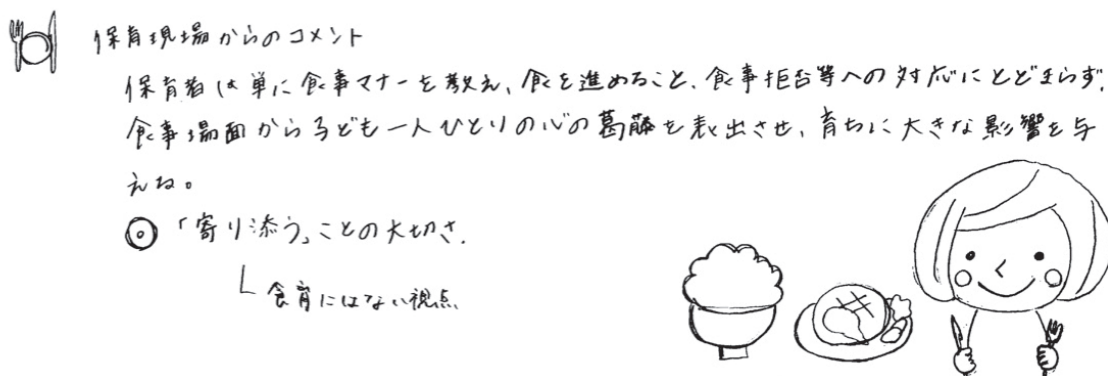 保育現場からのコメント
保育者は単に食事マナーを教え、食を進めること、食事拒否等への対応にとどまらず、
食事場面から子ども一人ひとりの心の葛藤を表出させ、育ちに大きな影響を与
えね。
◎「寄り添う」ことの大切さ.
└ 食育にはない視点